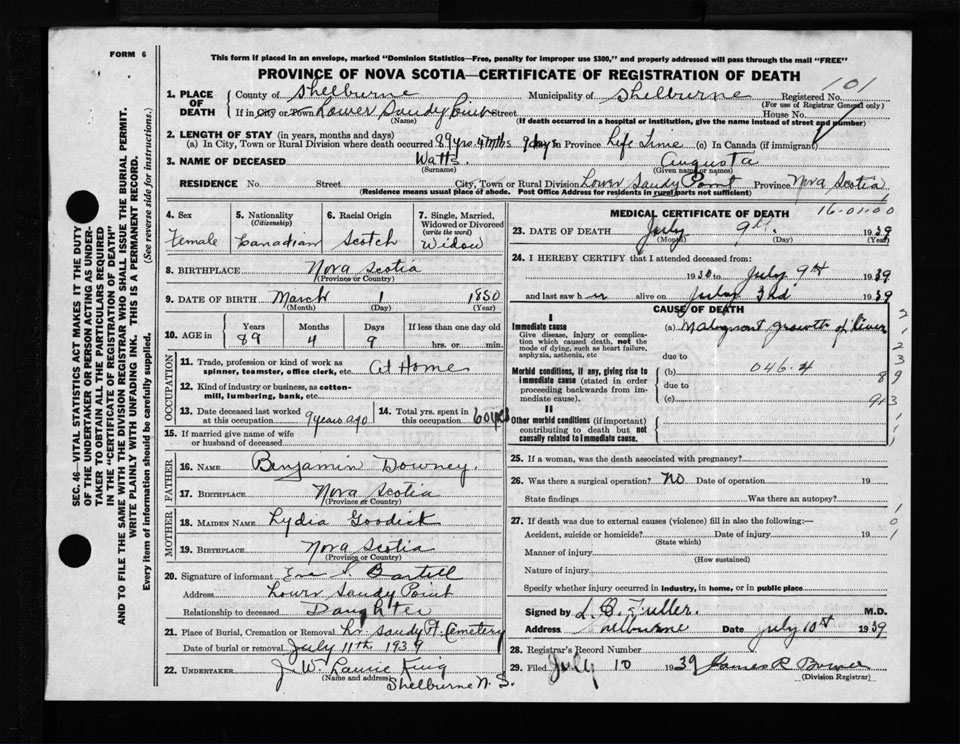 FORM 6
This form if placed in an envelope, marked "Dominion Statistics—Free, penalty for improper use $300," and properly addressed will pass through the mail "FREE"
PROVINCE OF NOVA SCOTIA—CERTIFICATE OF REGISTRATION OF DEATH
101
1. PLACE OF DEATH
County of Shelburne Municipality of Shelburne Registered No.
(For use of Registrar General only)
If in City or Town Lower Sandy Point Street House No.
(Name) (If death occurred in a hospital or institution, give the name instead of street and number)
2. LENGTH OF STAY (in years, months and days)
(a) In City, Town or Rural Division where death occurred 89 yrs. 4 mths 9 days In Province Life Time (c) In Canada (if immigrant)
3. NAME OF DECEASED Watts. Augusta
(Surname) (Given name or names)
RESIDENCE No. Street City, Town or Rural Division Lower Sandy Point Province Nova Scotia
(Residence means usual place of abode. Post Office Address for residents in rural parts not sufficient)
4. Sex
Female
5. Nationality
(Citizenship)
Canadian
6. Racial Origin
Scotch
7. Single, Married, Widowed or Divorced
(write the word)
Widow
8. BIRTHPLACE Nova Scotia
(Province or Country)
9. DATE OF BIRTH March 1 1850
(Month) (Day) (Year)
10. AGE in Years Months Days If less than one day old
89 4 9 hrs. or min.
OCCUPATION
11. Trade, profession or kind of work as
spinner, teamster, office clerk, etc. At Home
12. Kind of industry or business, as cotton-
mill, lumbering, bank, etc.
13. Date deceased last worked
at this occupation 9 years ago
14. Total yrs. spent in
this occupation 60 yrs
15. If married give name of wife
or husband of deceased
FATHER
16. NAME Benjamin Downey.
17. BIRTHPLACE Nova Scotia
(Province or Country)
MOTHER
18. MAIDEN NAME Lydia Goodick
19. BIRTHPLACE Nova Scotia
(Province or Country)
20. Signature of informant
Address Lower Sandy Point
Relationship to deceased Daughter
21. Place of Burial, Cremation or Removal Lr. Sandy Pt. Cemetery
Date of burial or removal July 11th 1939
22. UNDERTAKER J. W. Laurie King
(Name and address) Shelburne N. S.
MEDICAL CERTIFICATE OF DEATH
16-01-00
23. DATE OF DEATH July 9th. 1939
(Month) (Day) (Year)
24. I HEREBY CERTIFY that I attended deceased from:
1930 to July 9th 1939
and last saw her alive on July 3rd 1939
CAUSE OF DEATH
I
Immediate cause
Give disease, injury or complica-
tion which caused death, not the
mode of dying, such as heart failure,
asphyxia, asthenia, etc
(a) Malignant growth of liver
due to
Morbid conditions, if any, giving rise to
immediate cause (stated in order
proceeding backwards from im-
mediate cause).
(b) 046.4
due to
(c)
II
Other morbid conditions (if important)
contributing to death but not
causally related to immediate cause.
25. If a woman, was the death associated with pregnancy?
26. Was there a surgical operation? No Date of operation 19
State findings Was there an autopsy?
27. If death was due to external causes (violence) fill in also the following:—
Accident, suicide or homicide? Date of injury 19
(State which)
Manner of injury
(How sustained)
Nature of injury
Specify whether injury occurred in industry, in home, or in public place
Signed by L. O. Fuller. M.D.
Address Shelburne Date July 10th 1939
28. Registrar's Record Number
29. Filed July 10 1939 James R Bower
(Division Registrar)
SEC. 46—VITAL STATISTICS ACT MAKES IT THE DUTY
OF THE UNDERTAKER OR PERSON ACTING AS UNDER-
TAKER TO OBTAIN ALL THE PARTICULARS REQUIRED
IN THE "CERTIFICATE OF REGISTRATION OF DEATH"
AND TO FILE THE SAME WITH THE DIVISION REGISTRAR WHO SHALL ISSUE THE BURIAL PERMIT.
WRITE PLAINLY WITH UNFADING INK. THIS IS A PERMANENT RECORD.
Every item of information should be carefully supplied. (See reverse side for instructions.)